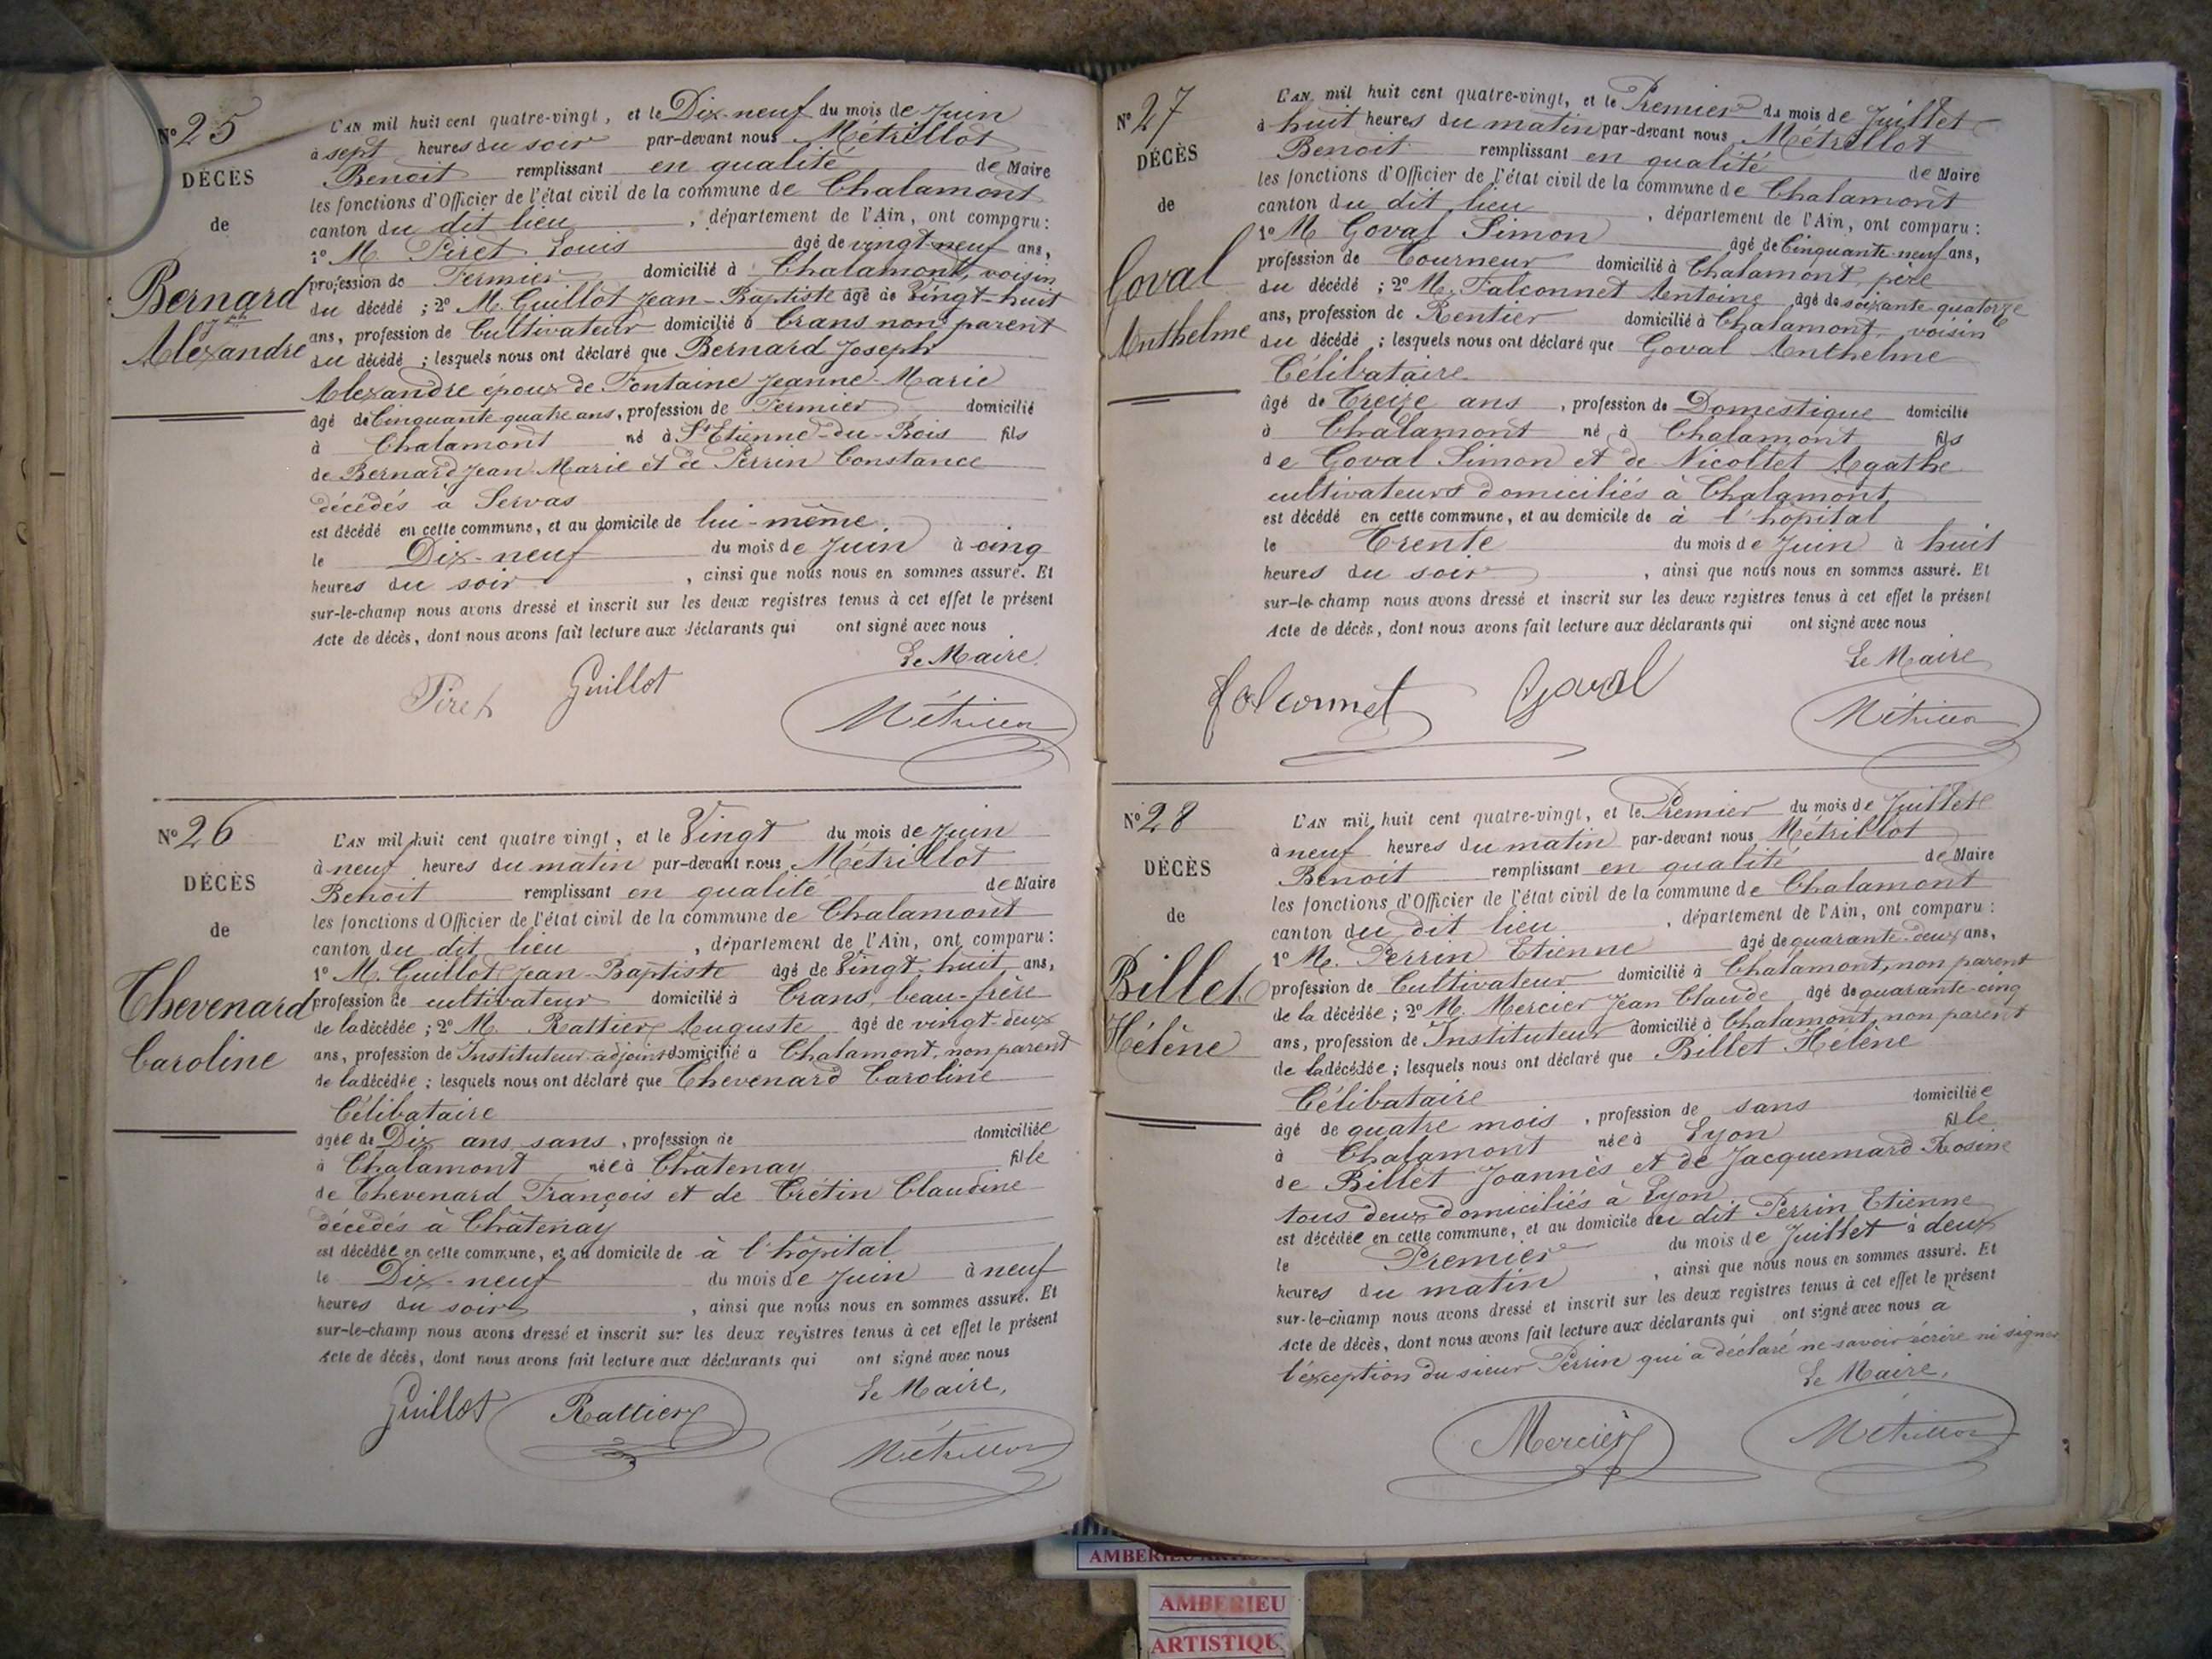 N° 25
DÉCÈS
de
Bernard
Jph
Alexandre
L'AN mil huit cent quatre-vingt, et le Dix-neuf du mois de Juin
à sept heures du soir par-devant nous Métrillot
Benoit remplissant en qualité de Maire
les fonctions d'Officier de l'état civil de la commune de Chalamont
canton du dit lieu, département de l'Ain, ont comparu:
1° M. Piret Louis âgé de vingt-neuf ans,
profession de Fermier domicilié à Chalamont, voisin
du décédé; 2° M. Guillot Jean-Baptiste âgé de Vingt-huit
ans, profession de Cultivateur domicilié à Crans non parent
du décédé; lesquels nous ont déclaré que Bernard Joseph
Alexandre époux de Fontaine Jeanne-Marie
âgé de Cinquante quatre ans, profession de Fermier domicilié
à Chalamont né à St Etienne-du-Bois fils
de Bernard Jean Marie et de Perrin Constance
décédés à Servas
est décédé en cette commune, et au domicile de lui-même.
le Dix-neuf du mois de Juin à cinq
heures du soir, ainsi que nous nous en sommes assuré. Et
sur-le-champ nous avons dressé et inscrit sur les deux registres tenus à cet effet le présent
Acte de décès, dont nous avons fait lecture aux déclarants qui ont signé avec nous
Le Maire.
Piret Guillot Métrillot
N° 26
DÉCÈS
de
Chevenard
Caroline
L'AN mil huit cent quatre vingt, et le Vingt du mois de Juin
à neuf heures du matin par-devant nous Métrillot
Benoit remplissant en qualité de Maire
les fonctions d'Officier de l'état civil de la commune de Chalamont
canton du dit lieu, département de l'Ain, ont comparu:
1° M. Guillot Jean-Baptiste âgé de Vingt-huit ans,
profession de cultivateur domicilié à Crans, beau-frère
de la décédée; 2° M. Rattier Auguste âgé de vingt-deux
ans, profession de Instituteur-adjoint domicilié à Chalamont, non parent
de la décédée; lesquels nous ont déclaré que Chevenard Caroline
Célibataire
âgée de Dix ans sans, profession de domiciliée
à Chalamont née à Châtenay fille
de Chevenard François et de Crétin Claudine
décédés à Châtenay
est décédée en cette commune, et au domicile de à l'hôpital
le Dix-neuf du mois de Juin à neuf
heures du soir, ainsi que nous nous en sommes assuré. Et
sur-le-champ nous avons dressé et inscrit sur les deux registres tenus à cet effet le présent
Acte de décès, dont nous avons fait lecture aux déclarants qui ont signé avec nous
Le Maire,
Guillot Rattier Métrillot
N° 27
DÉCÈS
de
Goval
Anthelme
L'AN mil huit cent quatre-vingt, et le Premier du mois de Juillet
à huit heures du matin par-devant nous Métrillot
Benoit remplissant en qualité de Maire
les fonctions d'Officier de l'état civil de la commune de Chalamont
canton du dit lieu, département de l'Ain, ont comparu:
1° M Goval Simon âgé de Cinquante neuf ans,
profession de Tourneur domicilié à Chalamont, père
du décédé; 2° M. Falconnet Antoine âgé de soixante quatorze
ans, profession de Rentier domicilié à Chalamont, voisin
du décédé; lesquels nous ont déclaré que Goval Anthelme
Célibataire
âgé de Treize ans, profession de Domestique domicilié
à Chalamont né à Chalamont fils
de Goval Simon et de Nicollet Agathe
cultivateurs domiciliés à Chalamont,
est décédé en cette commune, et au domicile de à l'hôpital
le Trente du mois de Juin à huit
heures du soir, ainsi que nous nous en sommes assuré. Et
sur-le-champ nous avons dressé et inscrit sur les deux registres tenus à cet effet le présent
Acte de décès, dont nous avons fait lecture aux déclarants qui ont signé avec nous
Le Maire
falconnet Goval Métrillot
N° 28
DÉCÈS
de
Billet
Hélène
L'AN mil huit cent quatre-vingt, et le Premier du mois de Juillet
à neuf heures du matin par-devant nous Métrillot
Benoit remplissant en qualité de Maire
les fonctions d'Officier de l'état civil de la commune de Chalamont
canton du dit lieu, département de l'Ain, ont comparu:
1° M. Perrin Etienne âgé de quarante-deux ans,
profession de Cultivateur domicilié à Chalamont, non parent
de la décédée; 2° M. Mercier Jean Claude âgé de quarante-cinq
ans, profession de Instituteur domicilié à Chalamont, non parent
de la décédée; lesquels nous ont déclaré que Billet Hélène
Célibataire
âgé de quatre mois, profession de sans domiciliée
à Chalamont née à Lyon fille
de Billet Joannès et de Jacquemard Rosine
tous deux domiciliés à Lyon
est décédée en cette commune, et au domicile du dit Perrin Etienne
le Premier du mois de Juillet à deux
heures du matin, ainsi que nous nous en sommes assuré. Et
sur-le-champ nous avons dressé et inscrit sur les deux registres tenus à cet effet le présent
Acte de décès, dont nous avons fait lecture aux déclarants qui ont signé avec nous à
l'exception du sieur Perrin qui a déclaré ne savoir écrire ni signer
Le Maire,
Mercier Métrillot
AMBERIEU
AMBERIEU
ARTISTIQU